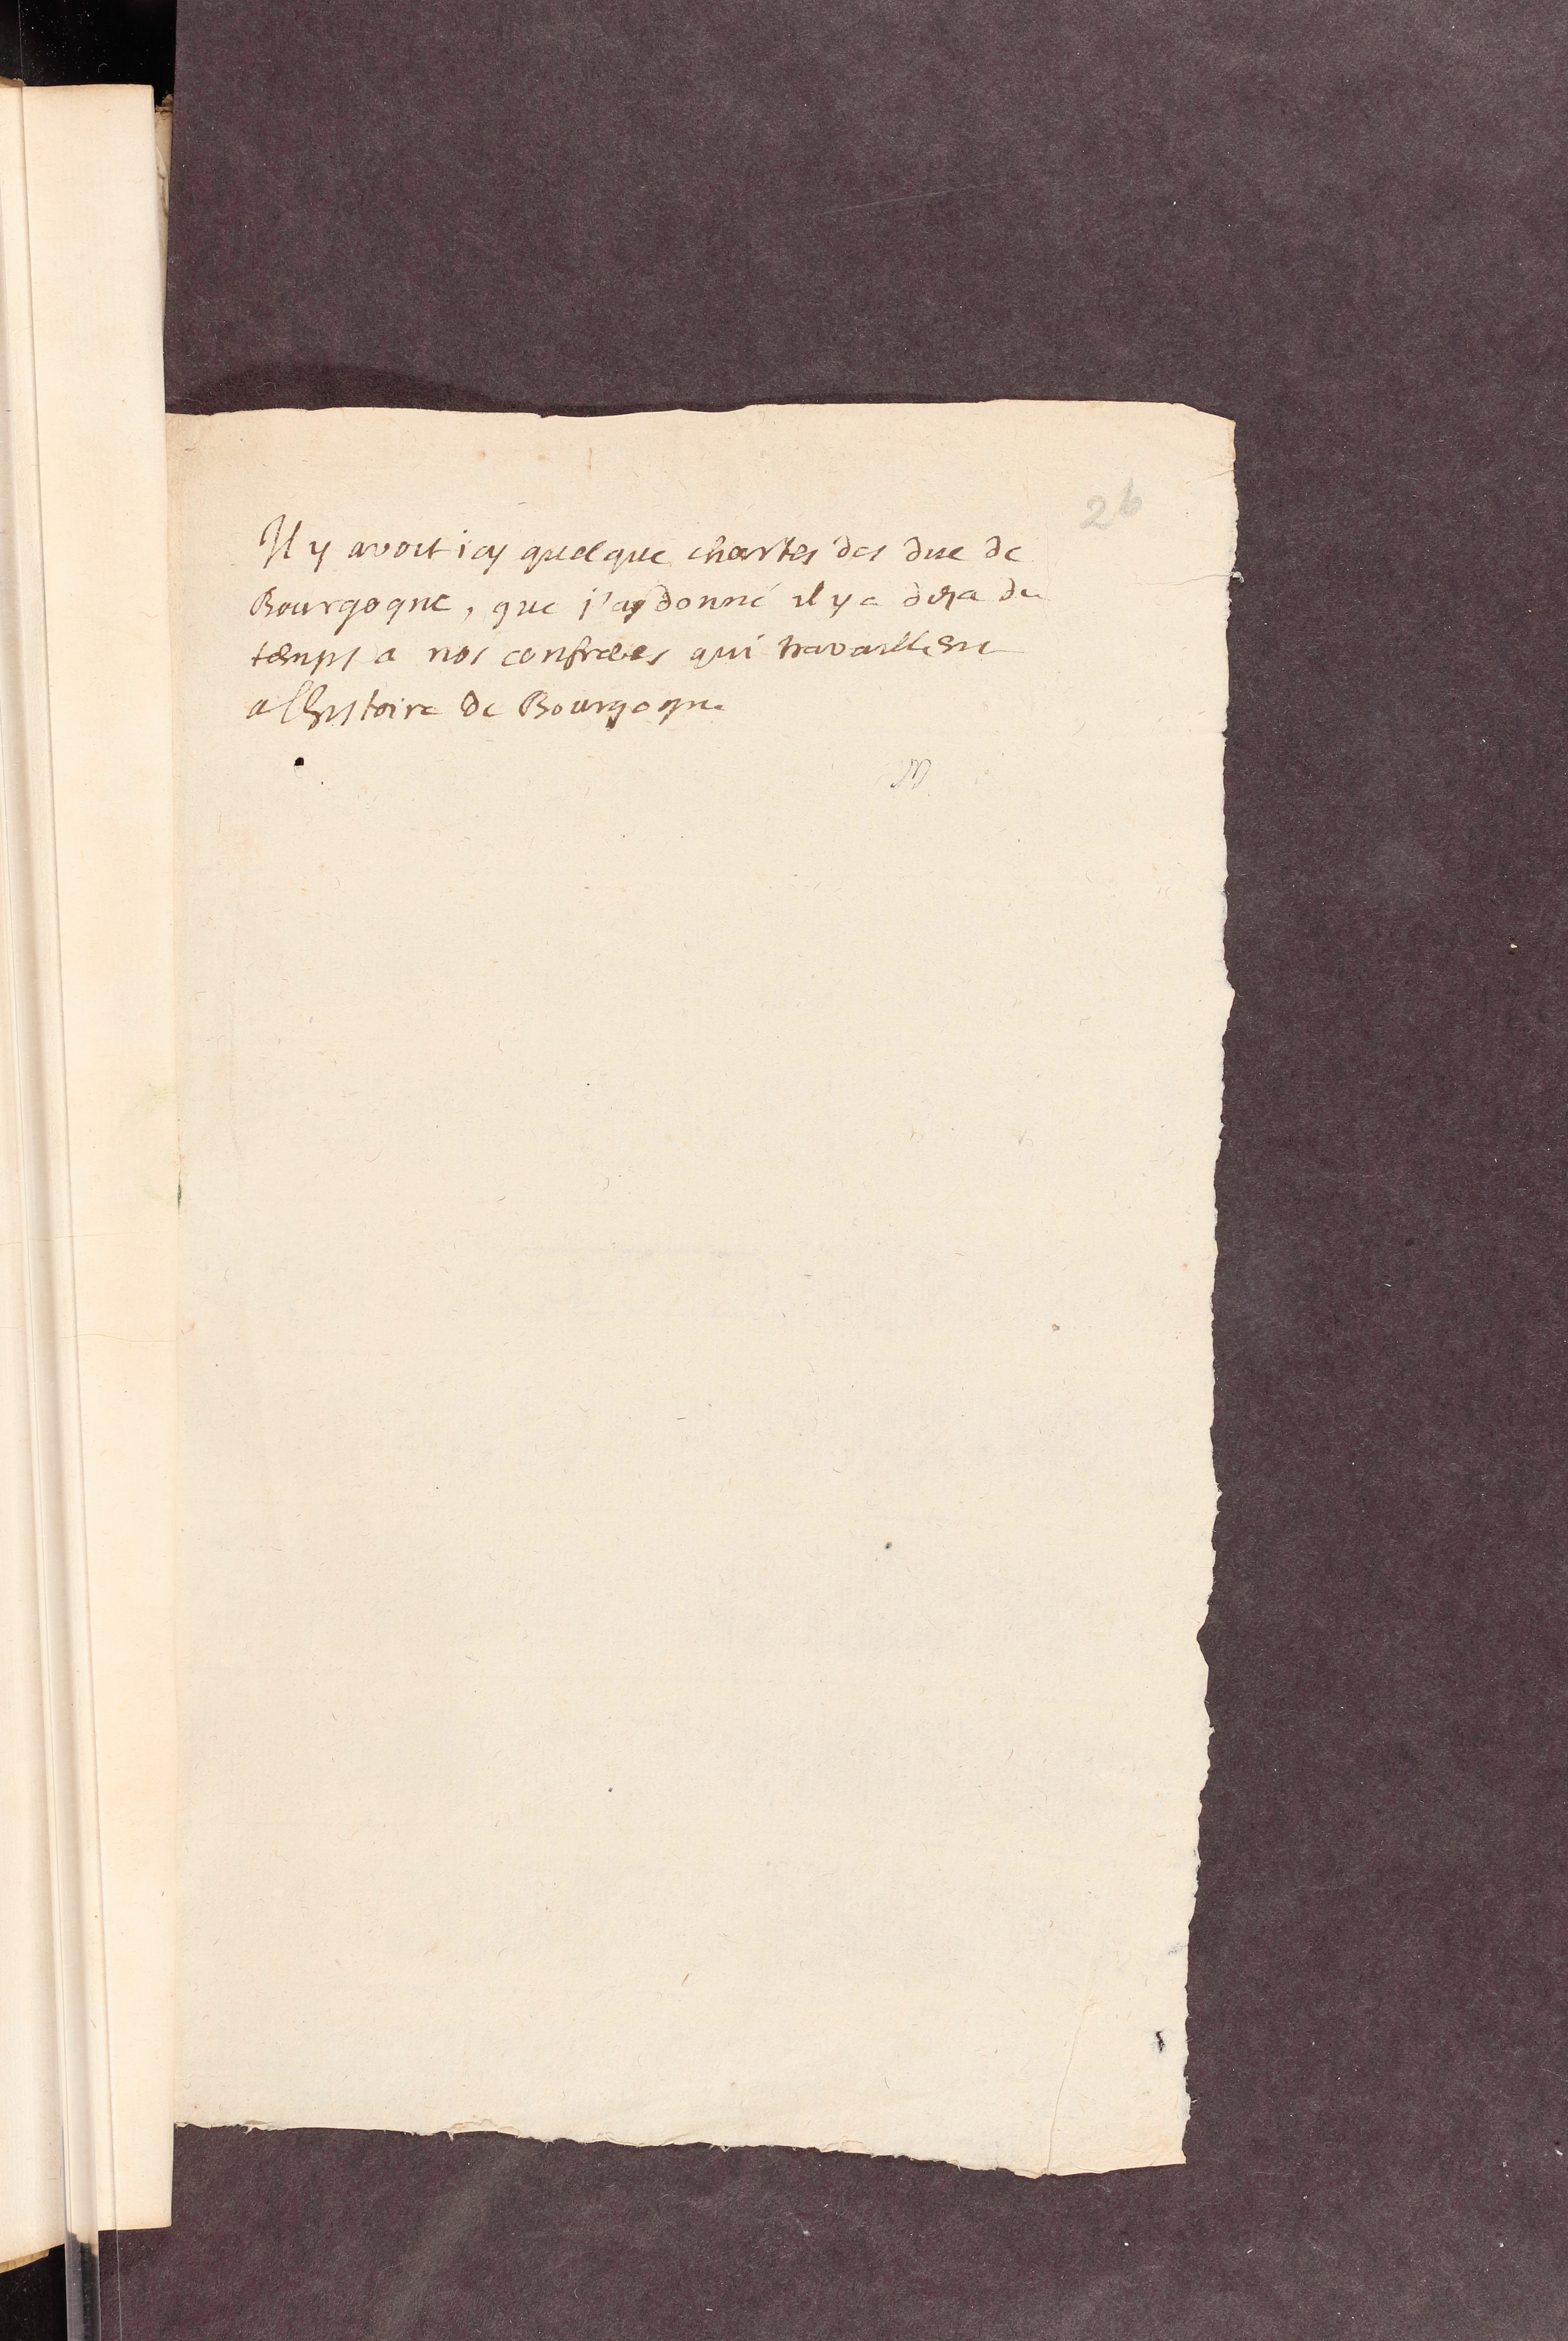 26
Il y avoit icy quelque chartes des duc de
Bourgogne, que j'ay donné il y a deja du
temps a nos confreres qui travaillent
a l'histoire de Bourgogne
M